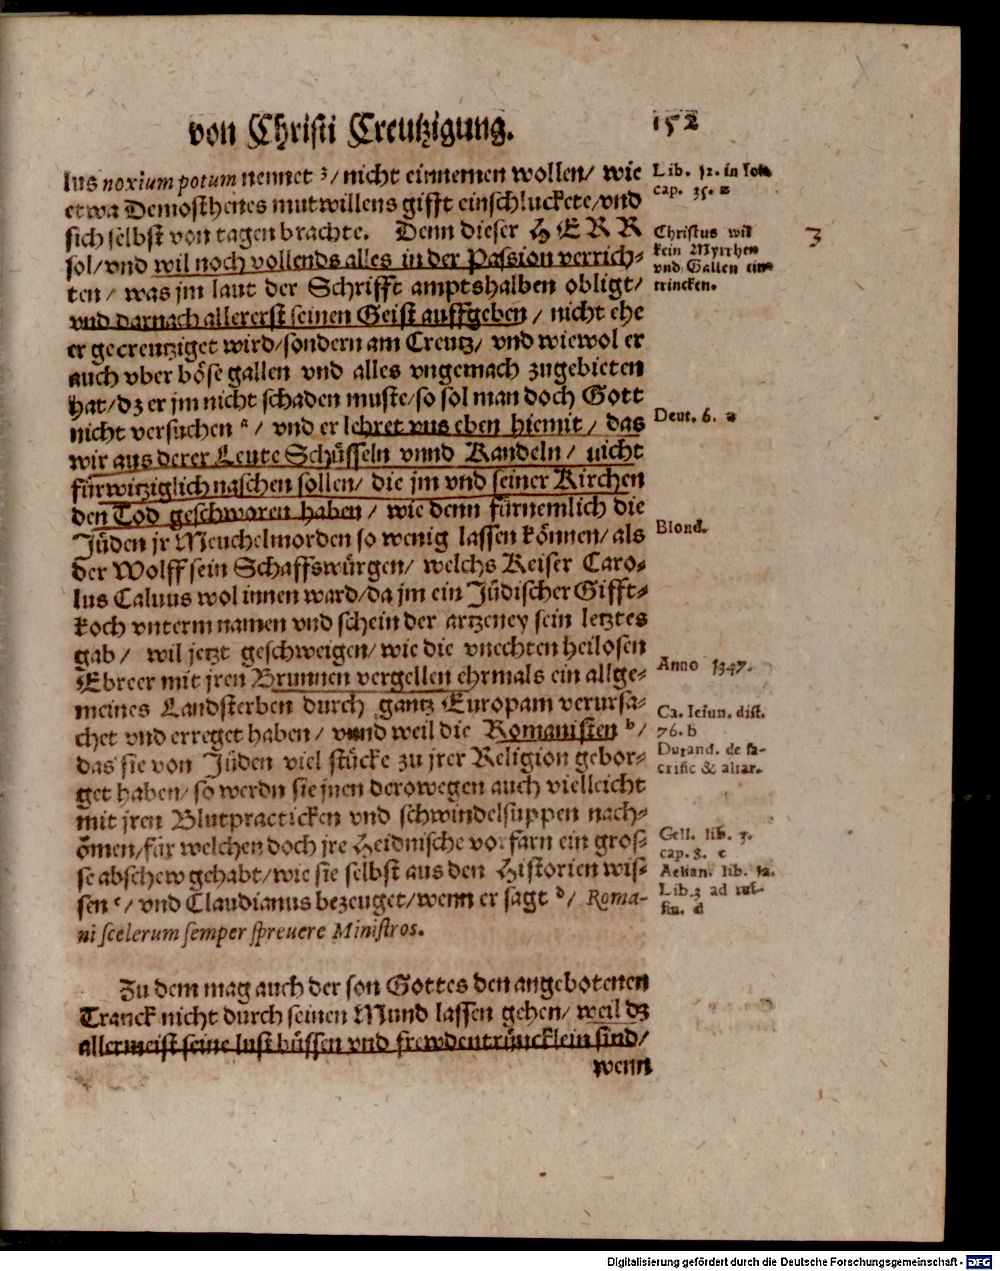 von Christi Creutzigung. 152
lus noxium potum nennet ꝫ/ nicht einnemen wollen/ wie
etwa Demosthenes mutwillens gifft einschluckete/ vnd
sich selbst von tagen brachte. Denn dieser HERR
sol/ vnd wil noch vollends alles in der Passion verrich-
ten/ was jm laut der Schrifft amptshalben obligt/
vnd darnach allererst seinen Geist auffgeben/ nicht ehe
er gecreutziget wird/ sondern am Creutz/ vnd wiewol er
auch vber böse gallen vnd alles vngemach zugebieten
hat/ dz er jm nicht schaden muste/ so sol man doch Gott
nicht versuchen a/ vnd er lehret vns eben hiemit/ das
wir aus derer Leute Schüsseln vnnd Kandeln/ nicht
fürwitziglich naschen sollen/ die jm vnd seiner Kirchen
den Tod geschworen haben/ wie denn fürnemlich die
Jüden jr Meuchelmorden so wenig lassen können/ als
der Wolff sein Schaffswürgen/ welchs Keiser Caro-
lus Caluus wol innen ward/ da jm ein Jüdischer Gifft-
koch vnterm namen vnd schein der artzeney sein letztes
gab/ wil jetzt geschweigen/ wie die vnechten heilosen
Ebreer mit jren Brunnen vergellen ehrmals ein allge-
meines Landsterben durch gantz Europam verursa-
chet vnd erreget haben/ vnnd weil die Romanisten b/
das sie von Jüden viel stücke zu jrer Religion gebor-
get haben/ so werdn sie jnen derowegen auch vielleicht
mit jren Blutpracticken vnd schwindelsuppen nach-
ömen/ für welchen doch jre Heidnische vorfarn ein gros-
se abschew gehabt/ wie sie selbst aus den Historien wis-
sen c/ vnd Claudianus bezeuget/ wenn er sagt d/ Roma-
ni scelerum semper spreuere Ministros.
Zu dem mag auch der son Gottes den angebotenen
Tranck nicht durch seinen Mund lassen gehen/ weil dz
allermeist seine lust büssen vnd frewdentrüncklein sind/
wenn
Lib. 12. in Ioh.
cap. 35. z
Christus wil
kein Myrrhen
vnd Gallen ein-
trincken.
3
Deut. 6. a
Blond.
Anno 1347.
Ca. Ieiun. dist.
76. b
Durand. de sa-
crific & altar.
Gell. lib. 3.
cap. 8. c
Aelian. lib. 12.
Lib. 3 ad ruf-
fin. d
Digitalisierung gefördert durch die Deutsche Forschungsgemeinschaft - DFG